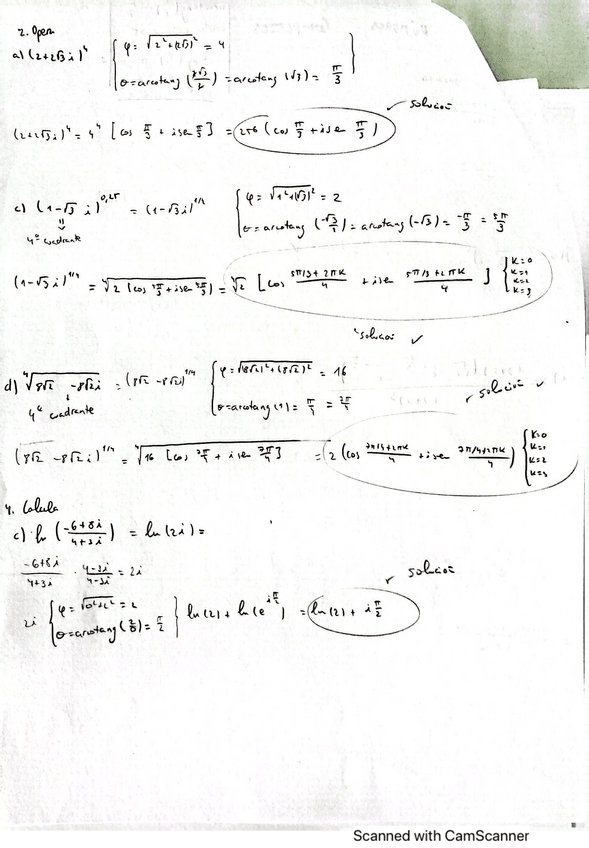 2. Opera
a) (2+2√3 i)⁴ { φ = √(2²+(2√3)²) = 4
θ = arcotang (2√3/2) = arcotang (√3) = π/3 }
solución
(2+2√3 i)⁴ = 4⁴ [cos π/3 + i sen π/3] = 256 (cos π/3 + i sen π/3)
c) (1-√3 i)^0,25 = (1-√3 i)^1/4 { φ = √(1²+(√3)²) = 2
4º cuadrante
θ = arcotang (-√3/1) = arcotang (-√3) = -π/3 = 5π/3
(1-√3 i)^1/4 = ⁴√(2 [cos 5π/3 + i sen 5π/3]) = ⁴√2 [cos (5π/3+2πK)/4 + i sen (5π/3+2πK)/4] { K=0
K=1
K=2
K=3
solución ✓
d) ⁴√(8√2 -8√2 i) = (8√2 -8√2 i)^1/4 { φ = √((8√2)²+(8√2)²) = 16
4º cuadrante
θ = arcotang (1) = π/4 = 7π/4
solución ✓
(8√2 -8√2 i)^1/4 = ⁴√(16 [cos 7π/4 + i sen 7π/4]) = 2 (cos (7π/4+2πK)/4 + i sen (7π/4+2πK)/4) { K=0
K=1
K=2
K=3
4. Calcula
c) ln ((-6+8i)/(4+3i)) = ln(2i) =
(-6+8i)/(4+3i) · (4-3i)/(4-3i) = 2i
solución
2i { φ = √(0²+2²) = 2
θ = arcotang (2/0) = π/2 } ln(2) + ln(e^(iπ/2)) = ln(2) + i π/2
Scanned with CamScanner